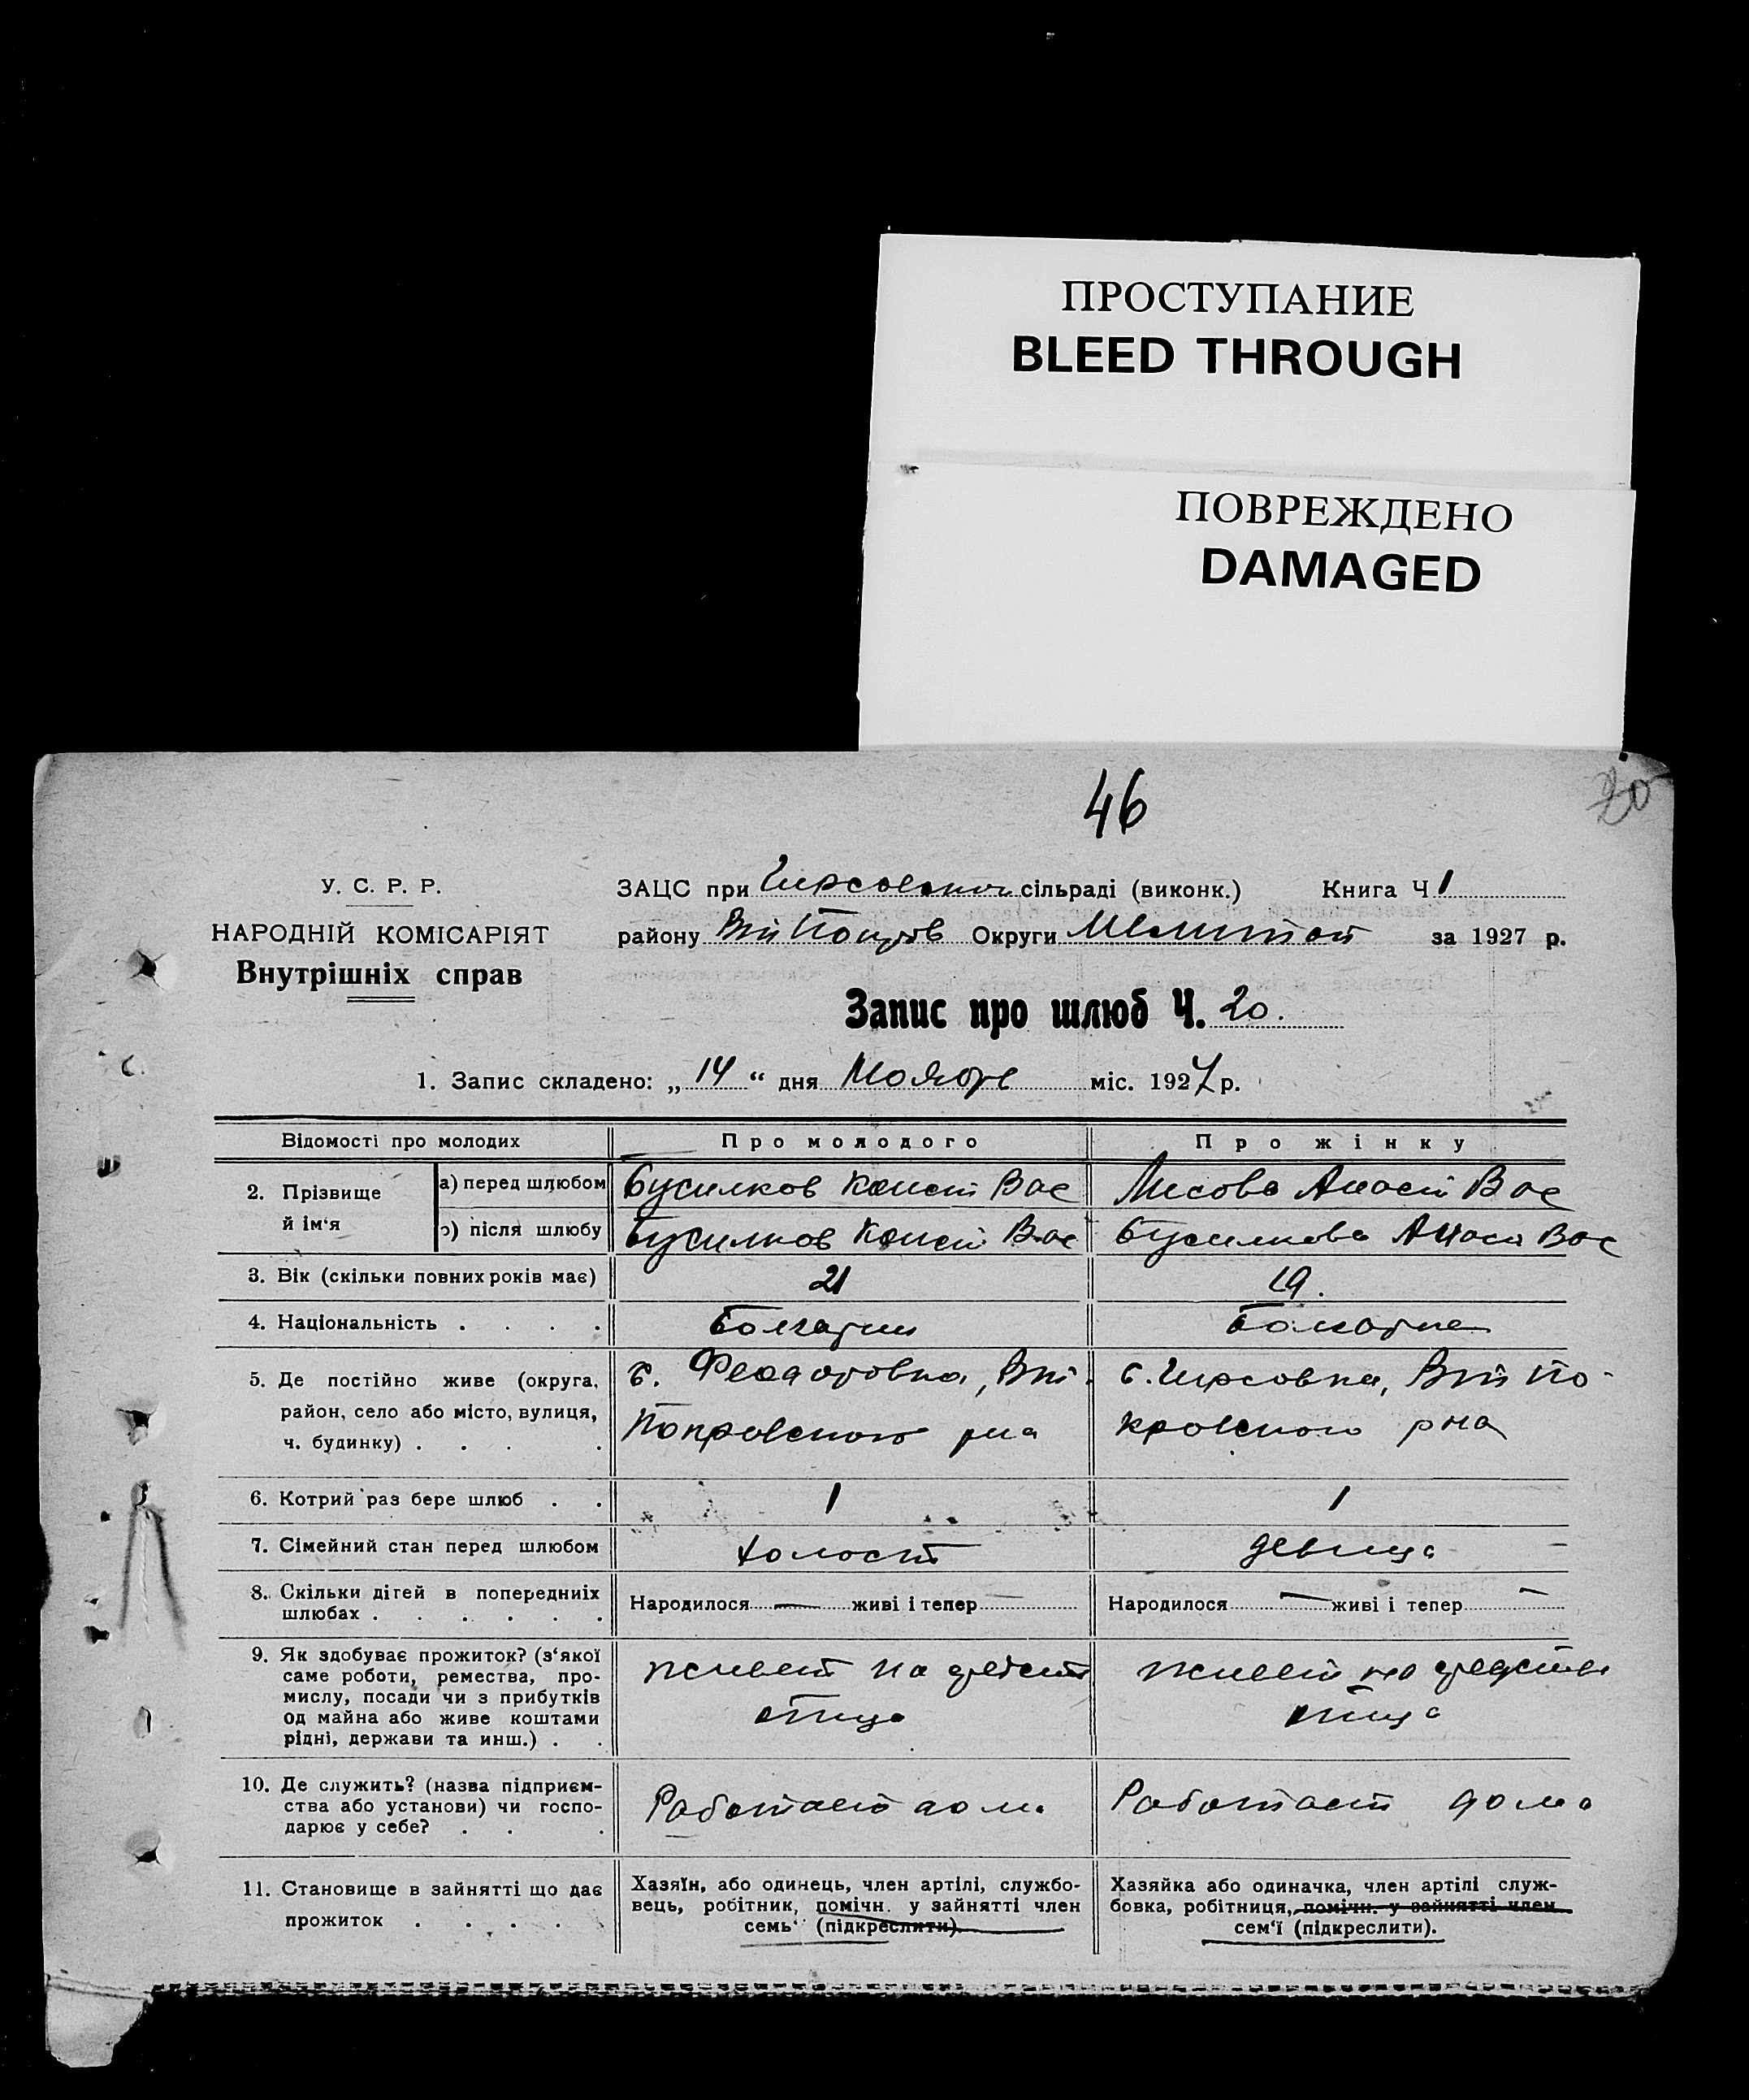 ПРОСТУПАНИЕ
BLEED THROUGH
ПОВРЕЖДЕНО
DAMAGED
46
20
У. С. Р. Р.
НАРОДНІЙ КОМІСАРІЯТ
Внутрішніх справ
ЗАЦС при Гирсовском сільраді (виконк.) Книга Ч 1
району Округи Мелитоп за 1927 р.
Запис про шлюб Ч. 20.
1. Запис складено: „ 14 “ дня Ноября міс. 1927 р.
Відомості про молодих Про молодого Про жінку
2. Прізвище й ім‘я а) перед шлюбом Бусилков Конст Вас Лисова Анаст Вас
б) після шлюбу Бусилков Конст Вас Бусилкова Анаст Вас
3. Вік (скільки повних років має) 21 19.
4. Національність . . . . Болгарин Болгарка
5. Де постійно живе (округа, район, село або місто, вулиця, ч. будинку) . . .
с. Феодоровка, Вт. Покровского рна
с. Гирсовка, Вт По-
кровского рна
6. Котрий раз бере шлюб . . 1 1
7. Сімейний стан перед шлюбом холост девица
8. Скільки дітей в попередниіх шлюбах . . . . . . Народилося — живі і тепер — Народилося — живі і тепер —
9. Як здобуває прожиток? (з‘якої саме роботи, ремества, промислу, посади чи з прибутків од майна або живе коштами рідні, держави та инш.) . .
живет на средст отца
живет на средства отца
10. Де служить? (назва підприєм-
ства або установи) чи госпо-
дарює у себе? . . .
Работает дома Работает дома
11. Становище в зайнятті що дає
прожиток . . . . .
Хазяїн, або одинець, член артілі, службо-
вець, робітник, помічн. у зайнятті член
семь‘ (підкреслити).
Хазяйка або одиначка, член артілі служ-
бовка, робітниця, помічн. у зайнятті член
сем‘ї (підкреслити).